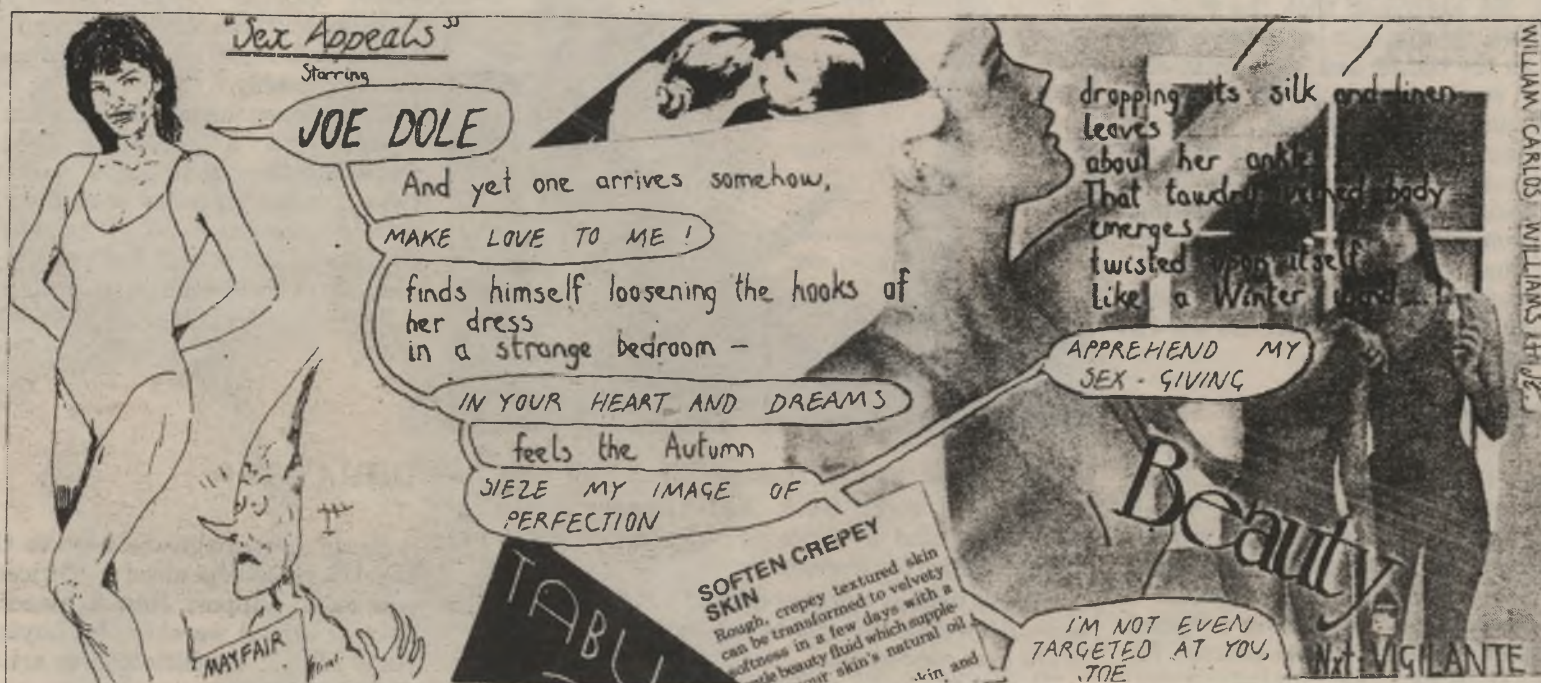 "Sex Appeals"
Starring
JOE DOLE
And yet one arrives somehow,
MAKE LOVE TO ME !
finds himself loosening the hooks of
her dress
in a strange bedroom —
IN YOUR HEART AND DREAMS
feels the Autumn
SIEZE MY IMAGE OF
PERFECTION
dropping its silk and linen
leaves
about her ankles
That tawdry veined body
emerges
twisted upon itself
like a Winter wind...!
APPREHEND MY
SEX - GIVING
I'M NOT EVEN
TARGETED AT YOU,
JOE
Beauty
SOFTEN CREPEY
SKIN
Rough, crepey textured skin
can be transformed to velvety
softness in a few days with a
beauty fluid which supple-
your skin's natural oil
skin and
TABU
MAYFAIR
Nxt: VIGILANTE
WILLIAM CARLOS WILLIAMS